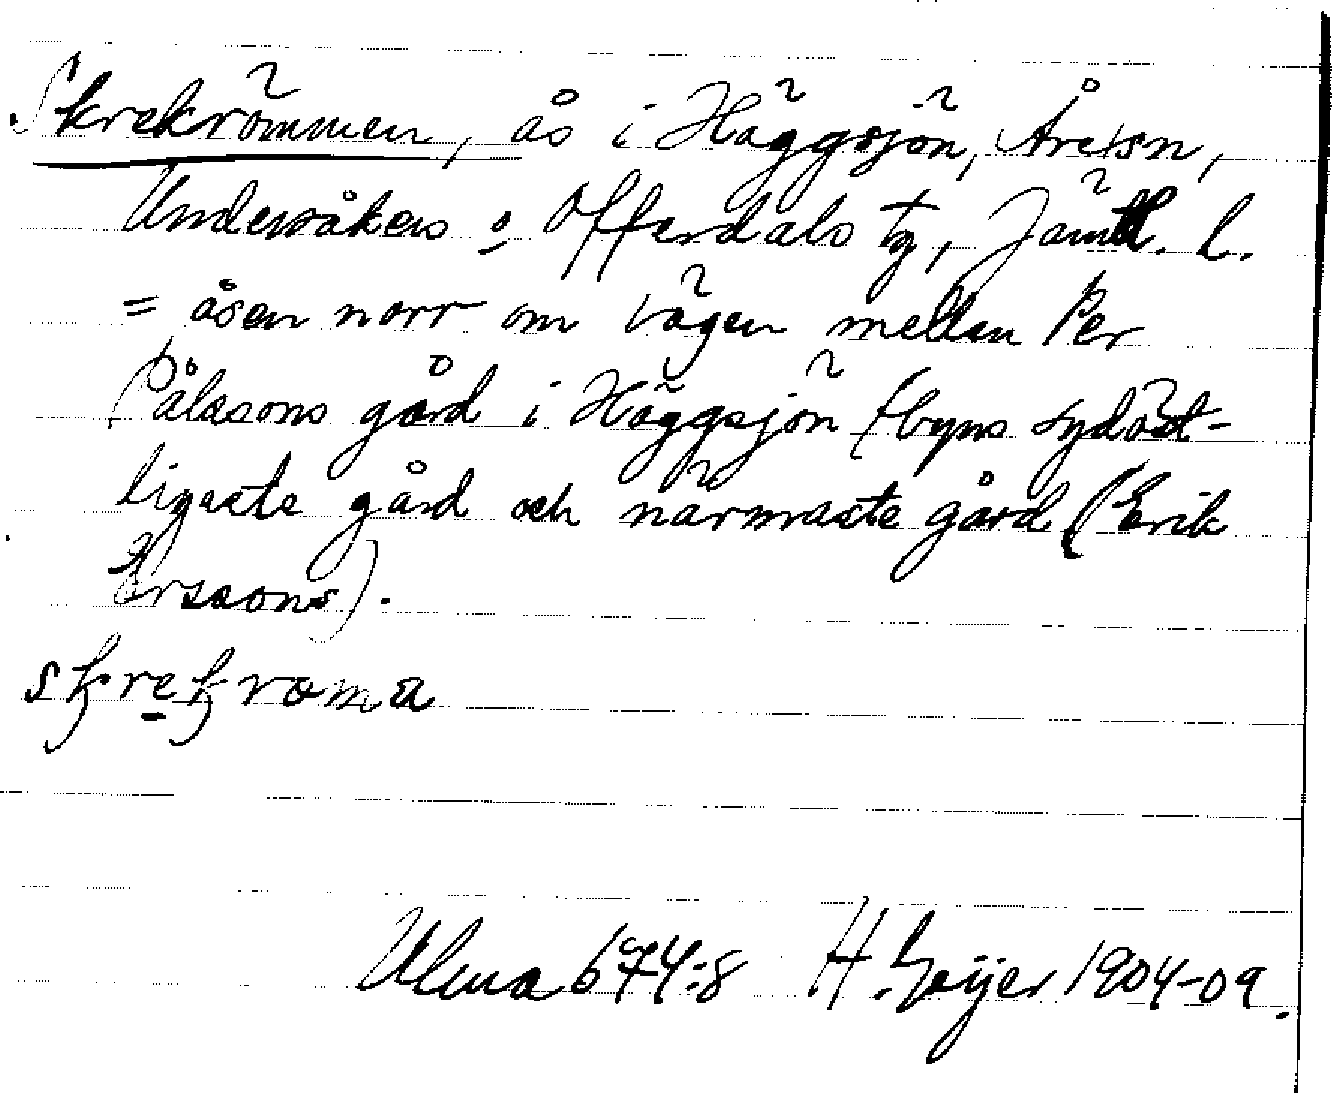 Skrekrömmen, ås i Häggsjön, Åre sn,
Undersåkers o Offerdals tg, Jämtl. l.
= åsen norr om vägen mellan Per
Pålssons gård i Häggsjön (byns sydöst-
ligaste gård och närmaste gård (Erik
Erssons).
skrekroma
Ulma 674:8 H. Geijer 1904-09.